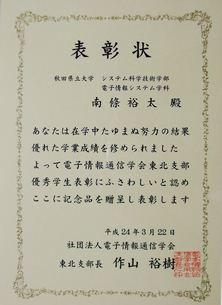 表彰状
秋田県立大学 システム科学技術学部
電子情報システム学科
南條裕太 殿
あなたは在学中たゆまぬ努力の結果
優れた学業成績を修められました
よって電子情報通信学会東北支部
優秀学生表彰にふさわしいと認め
ここに記念品を贈呈し表彰します
平成24年3月22日
社団法人電子情報通信学会
東北支部長 作山裕樹